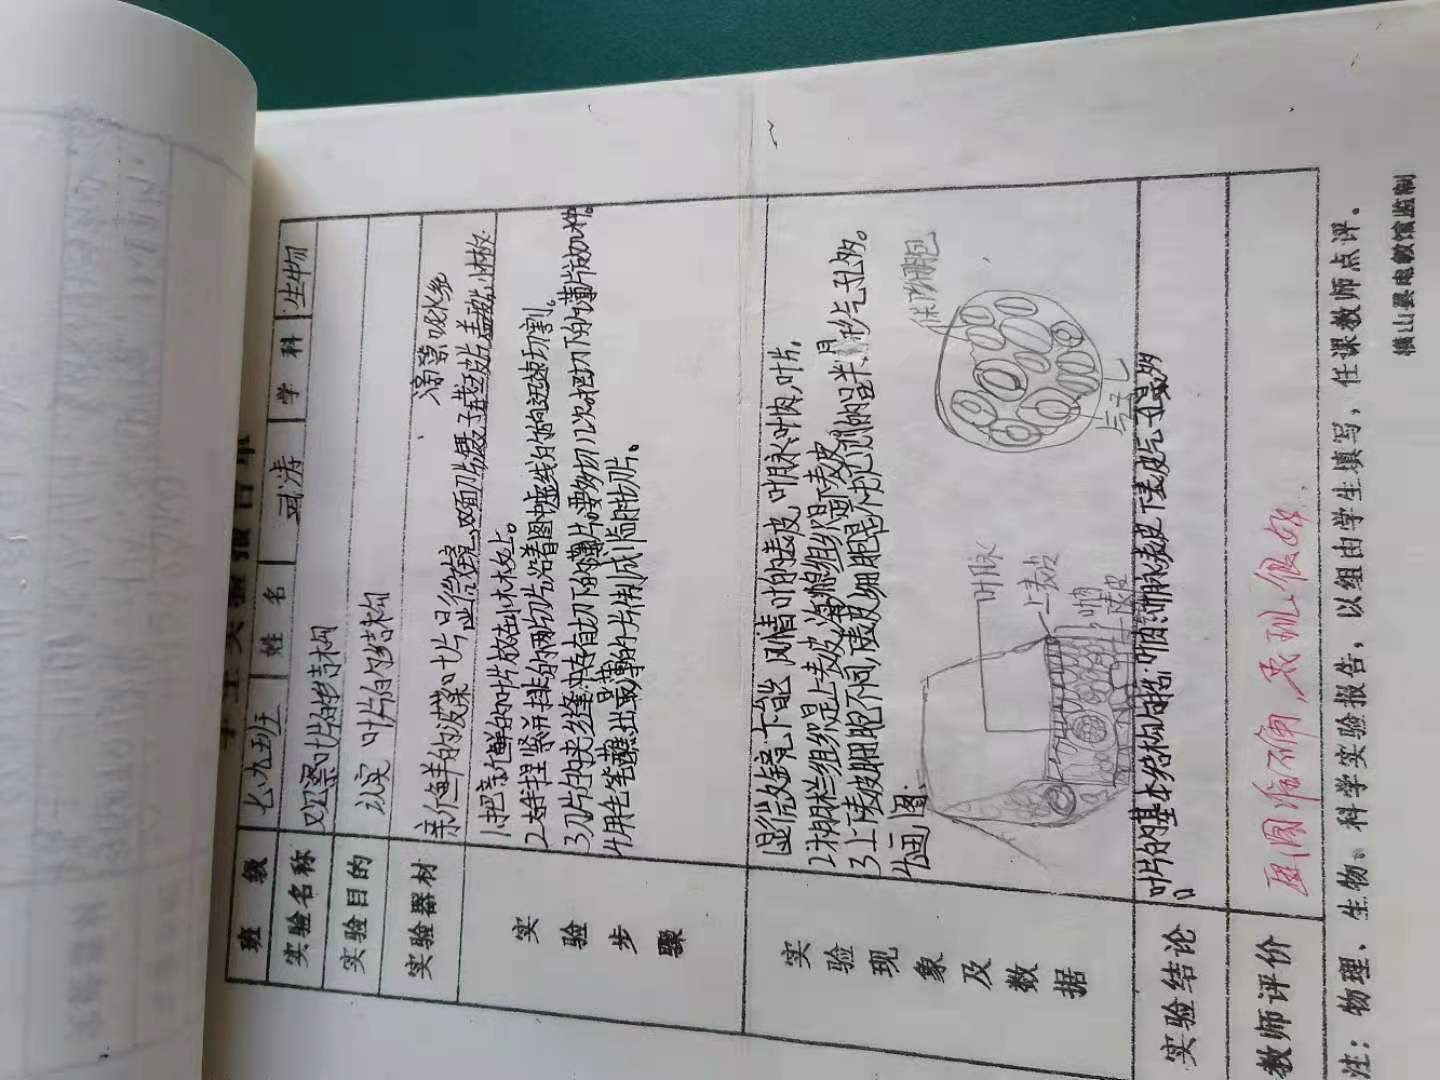 学生实验报告单
班级 七九班 姓名 武涛 学科 生物
实验名称 观察叶片的结构
实验目的 认实 叶片的结构
实验器材 新鲜的菠菜叶片显微镜 双面刀片镊子载玻片盖玻小木板
滴管
实验步骤
1把新鲜的叶片放在小木板上。
2右手捏紧并排的两片沿着图中虚线的方向迅速切割。
3刀片的夹缝中夹有切下的薄片。要多切几次把切下的薄片放入水中。
4用毛笔蘸出最薄的一片制成临时切片。
实验现象及数据
显微镜下能 叶的表皮,叶脉,叶肉,叶片。
2栅栏组织是上表皮,海绵组织是下表皮
3上下表皮细胞不同,下表皮细胞是不规则的呈半月形气孔多。
4画图:
叶脉
上表皮
叶肉
下表皮
保卫细胞
气孔
实验结论 叶片的基本结构包括:叶肉 叶脉表皮 下表皮气孔最多
教师评价 画图准确,表现很好
注:物理、生物。科学实验报告,以组由学生填写,任课教师点评。
横山县电教馆监制